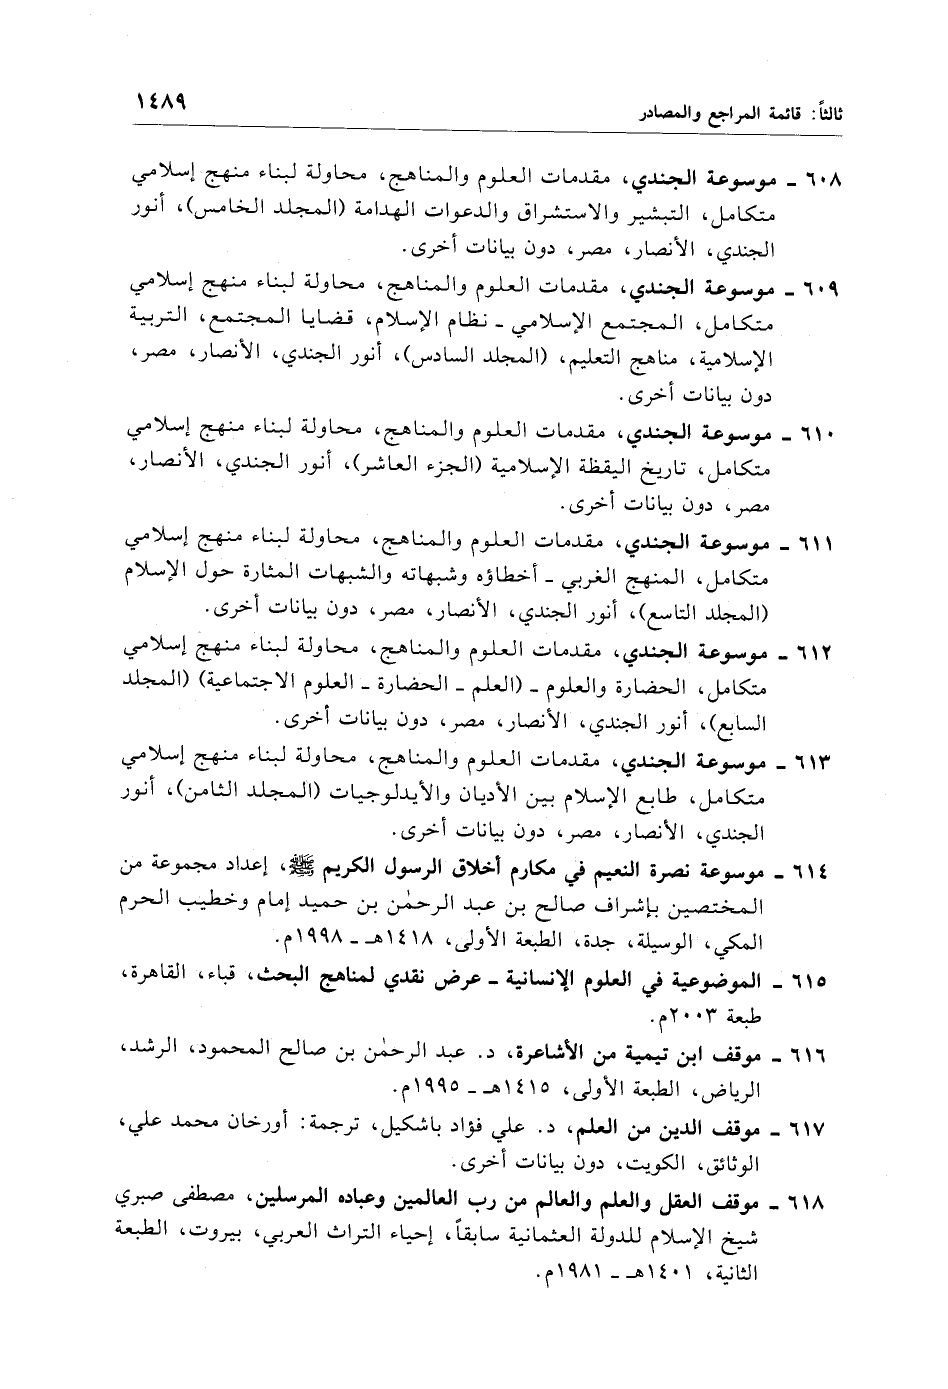 ثالثاً: قائمة المراجع والمصادر ١٤٨٩
٦٠٨ ـ موسوعة الجندي، مقدمات العلوم والمناهج، محاولة لبناء منهج إسلامي
متكامل، التبشير والاستشراق والدعوات الهدامة (المجلد الخامس)، أنور
الجندي، الأنصار، مصر، دون بيانات أخرى.
٦٠٩ ـ موسوعة الجندي، مقدمات العلوم والمناهج، محاولة لبناء منهج إسلامي
متكامل، المجتمع الإسلامي ـ نظام الإسلام، قضايا المجتمع، التربية
الإسلامية، مناهج التعليم، (المجلد السادس)، أنور الجندي، الأنصار، مصر،
دون بيانات أخرى.
٦١٠ ـ موسوعة الجندي، مقدمات العلوم والمناهج، محاولة لبناء منهج إسلامي
متكامل، تاريخ اليقظة الإسلامية (الجزء العاشر)، أنور الجندي، الأنصار،
مصر، دون بيانات أخرى.
٦١١ ـ موسوعة الجندي، مقدمات العلوم والمناهج، محاولة لبناء منهج إسلامي
متكامل، المنهج الغربي ـ أخطاؤه وشبهاته والشبهات المثارة حول الإسلام
(المجلد التاسع)، أنور الجندي، الأنصار، مصر، دون بيانات أخرى.
٦١٢ ـ موسوعة الجندي، مقدمات العلوم والمناهج، محاولة لبناء منهج إسلامي
متكامل، الحضارة والعلوم ـ (العلم ـ الحضارة ـ العلوم الاجتماعية) (المجلد
السابع)، أنور الجندي، الأنصار، مصر، دون بيانات أخرى.
٦١٣ ـ موسوعة الجندي، مقدمات العلوم والمناهج، محاولة لبناء منهج إسلامي
متكامل، طابع الإسلام بين الأديان والأيدلوجيات (المجلد الثامن)، أنور
الجندي، الأنصار، مصر، دون بيانات أخرى.
٦١٤ ـ موسوعة نصرة النعيم في مكارم أخلاق الرسول الكريم ﷺ، إعداد مجموعة من
المختصين بإشراف صالح بن عبد الرحمٰن بن حميد إمام وخطيب الحرم
المكي، الوسيلة، جدة، الطبعة الأولى، ١٤١٨هـ ـ ١٩٩٨م.
٦١٥ ـ الموضوعية في العلوم الإنسانية ـ عرض نقدي لمناهج البحث، قباء، القاهرة،
طبعة ٢٠٠٣م.
٦١٦ ـ موقف ابن تيمية من الأشاعرة، د. عبد الرحمٰن بن صالح المحمود، الرشد،
الرياض، الطبعة الأولى، ١٤١٥هـ ـ ١٩٩٥م.
٦١٧ ـ موقف الدين من العلم، د. علي فؤاد باشكيل، ترجمة: أورخان محمد علي،
الوثائق، الكويت، دون بيانات أخرى.
٦١٨ ـ موقف العقل والعلم والعالم من رب العالمين وعباده المرسلين، مصطفى صبري
شيخ الإسلام للدولة العثمانية سابقاً، إحياء التراث العربي، بيروت، الطبعة
الثانية، ١٤٠١هـ ـ ١٩٨١م.